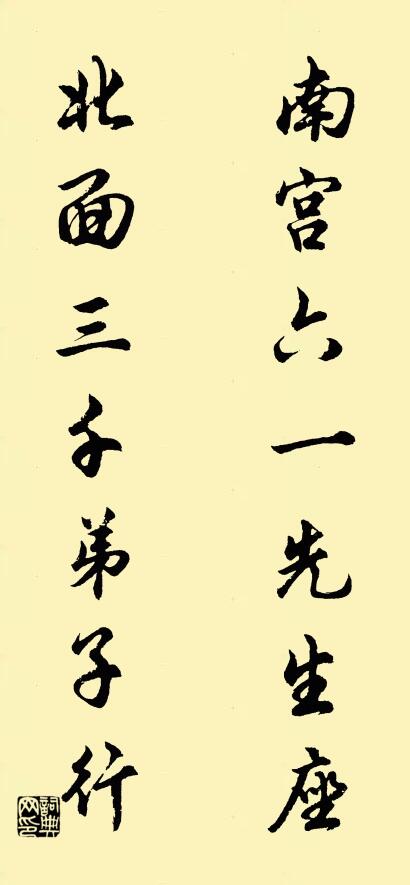 南宫六一先生座
北面三千弟子行
詞典网印